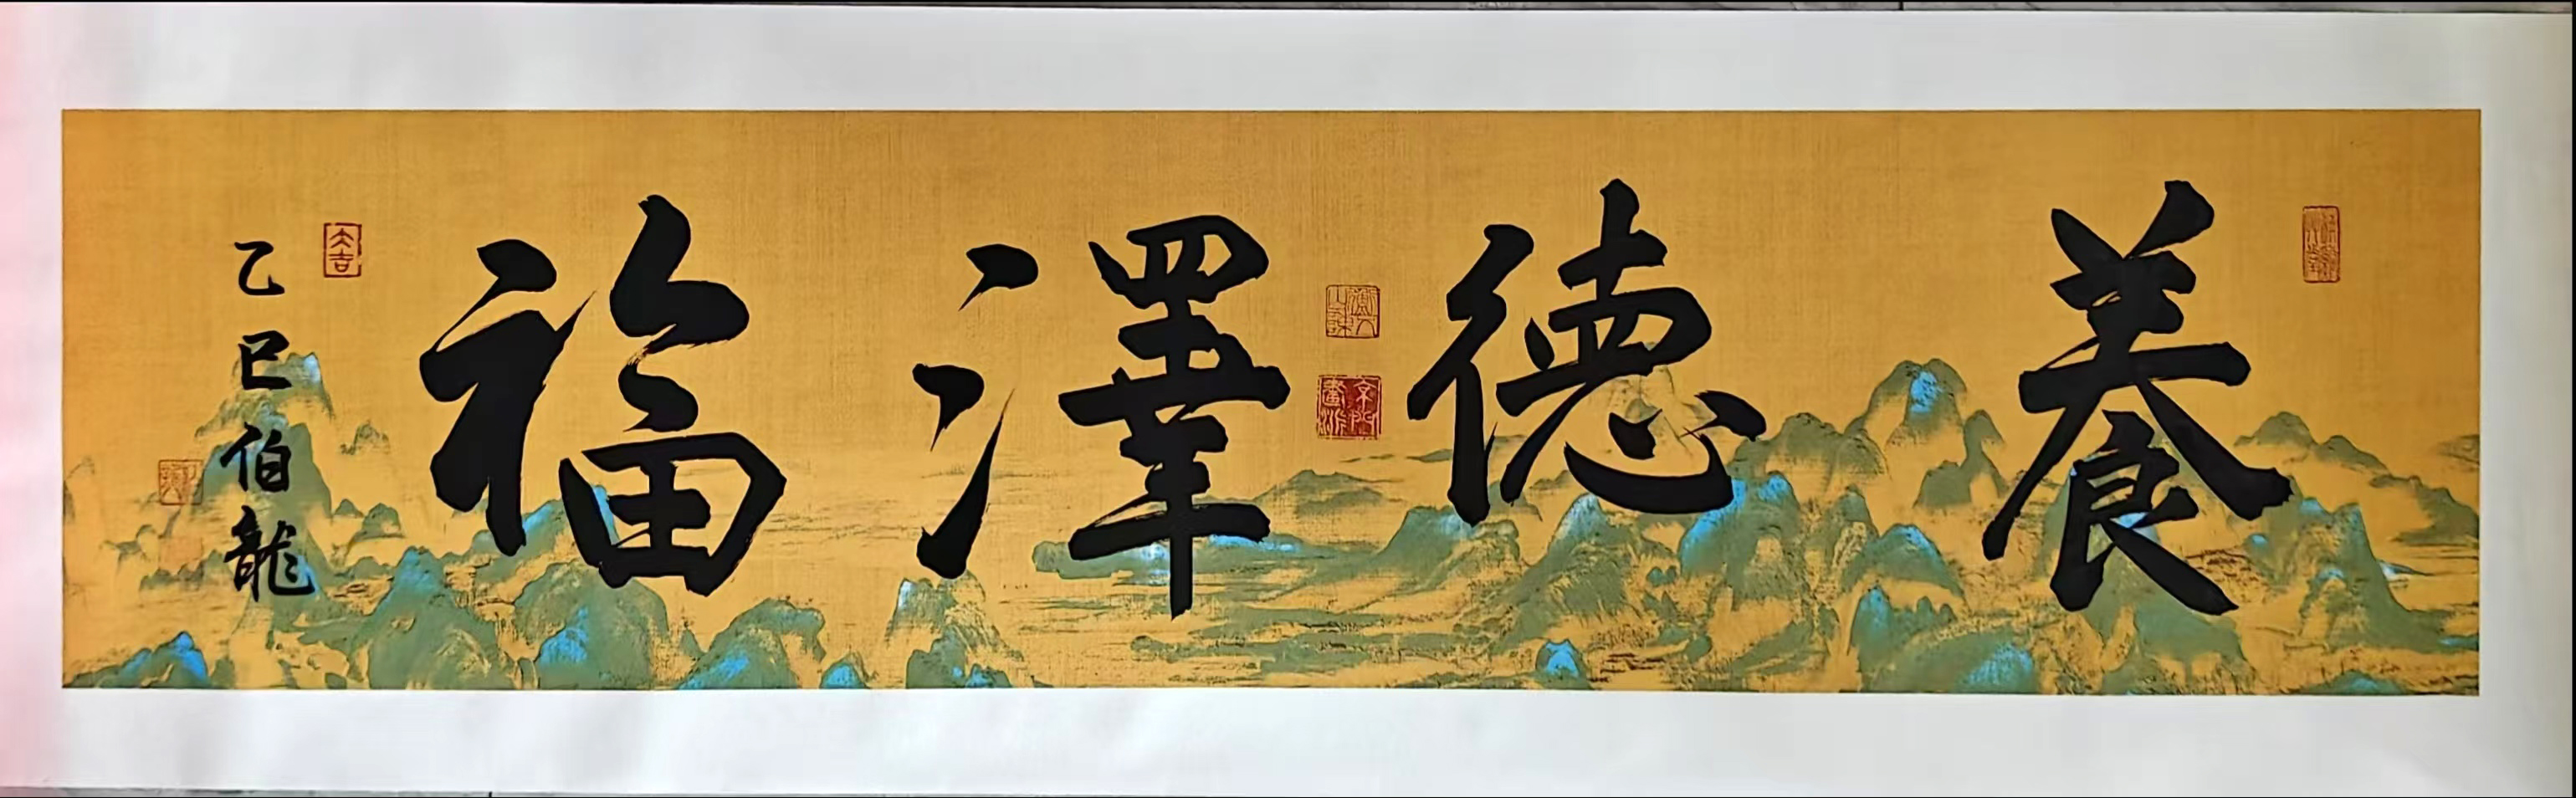 養德澤福
乙巳伯龍
大吉